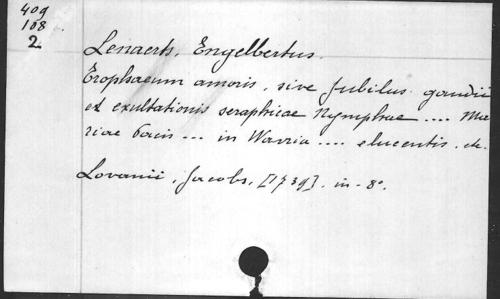 409
108
2
Lenaerts, Engelbertus.
Trophaeum amoris, sive Jubilus gaudii
et exultationis seraphicae Nymphae .... Ma-
riae ... in Warria .... elucentis, etc.
Lovanii, Jacobs, [1739]. in-8°.